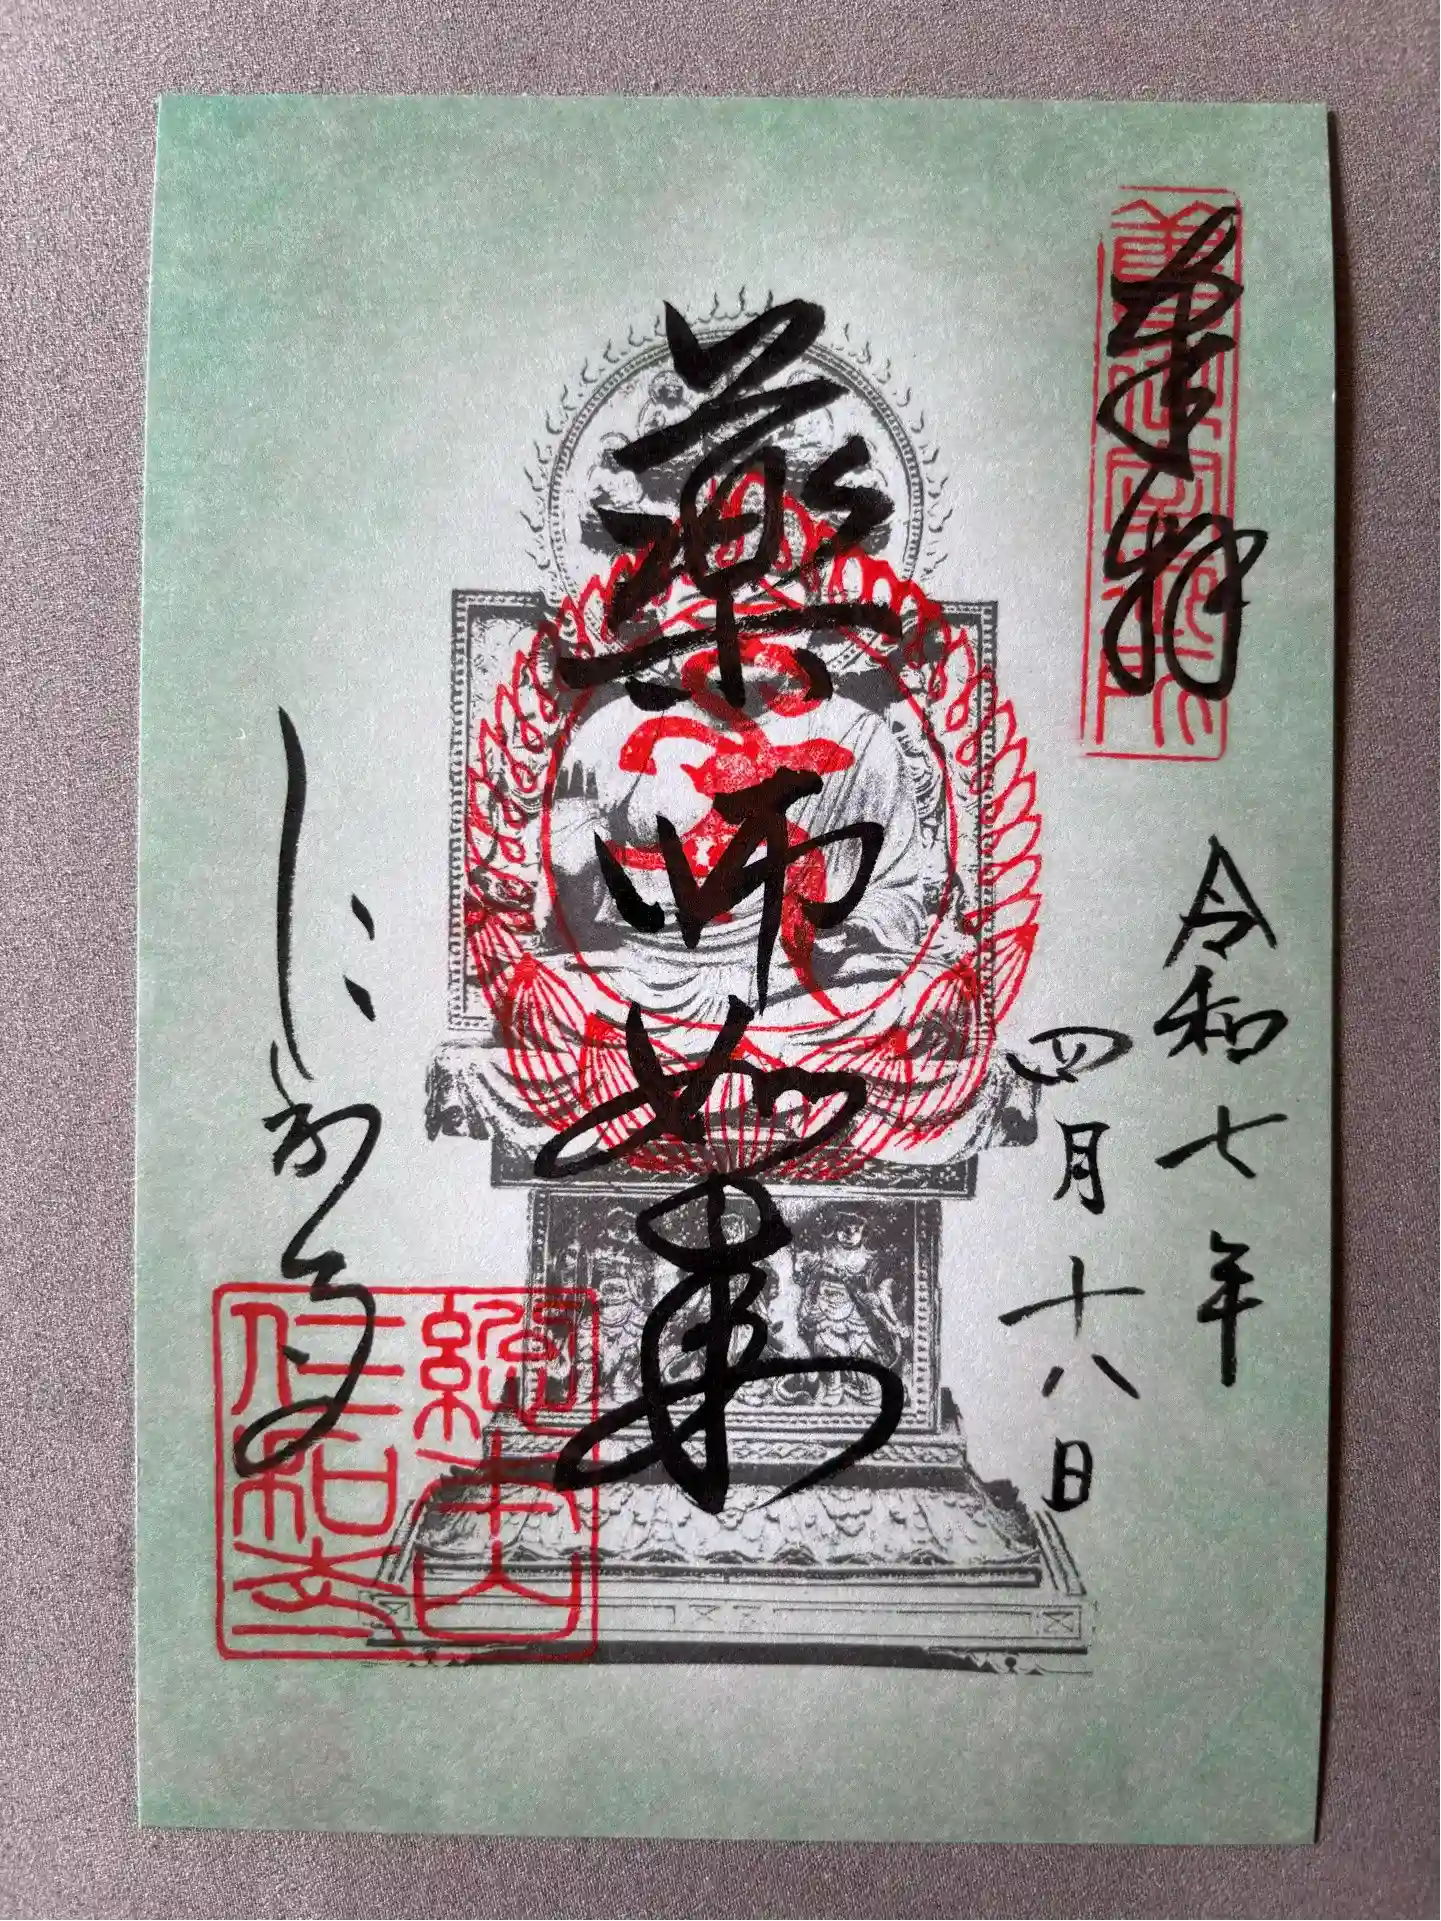 奉拝
令和七年
四月十八日
薬師如来
仁和寺
總本山
仁和寺